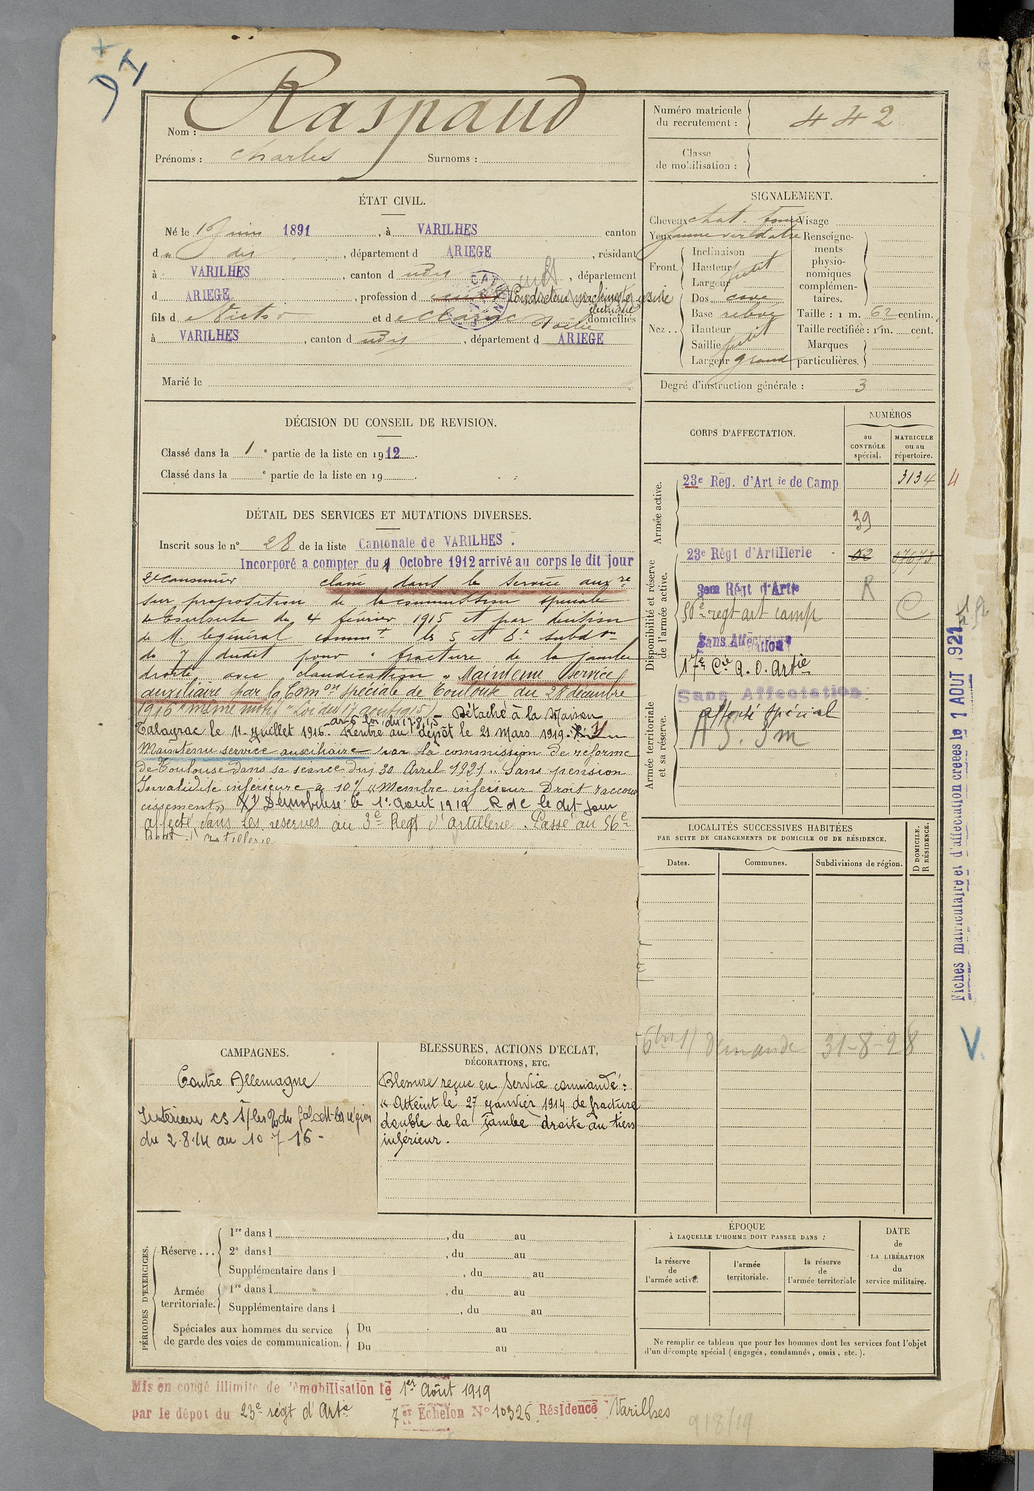 Nom : Raspaud
Prénoms : Charles Surnoms :
Numéro matricule du recrutement : 442
Classe de mobilisation :
ÉTAT CIVIL.
Né le juin 1891, à VARILHES canton
d dudit, département d ARIEGE, résidant
à VARILHES, canton d dudit, département
d ARIEGE, profession d Conducteur machines usine
électrique
fils d et d domiciliés
à VARILHES, canton d dudit, département d ARIEGE
Marié le
SIGNALEMENT.
Cheveux chat. foncé Visage
Yeux jaune verdâtre
Front. Inclinaison
Hauteur petit
Largeur
Nez. Dos cave
Base relevé
Hauteur
Saillie petit
Largeur grand
Renseignements physionomiques complémentaires.
Taille : 1 m. 62 centim.
Taille rectifiée : 1 m. cent.
Marques particulières.
Degré d'instruction générale : 3
DÉCISION DU CONSEIL DE REVISION.
Classé dans la 1e partie de la liste en 1912.
Classé dans la e partie de la liste en 19
CORPS D'AFFECTATION.
NUMÉROS
au CONTRÔLE spécial.
MATRICULE ou au répertoire.
Armée active.
23e Rég. d'Artie de Camp 3134
39
Disponibilité et réserve de l'armée active.
23e Régt d'Artillerie
3eme Régt d'Artie R
56e regt art camp
Sans Affectation
17e Cie O. Artie
Armée territoriale et sa réserve.
Sans Affectation.
affecté spécial
DÉTAIL DES SERVICES ET MUTATIONS DIVERSES.
Inscrit sous le n° 28 de la liste Cantonale de VARILHES.
Incorporé a compter du Octobre 1912 arrivé au corps le dit jour
2e canonnier classé dans le service auxre
sur proposition de la commission spéciale
de Toulouse du 4 février 1915 et par décision
de M. le général commt les 5 et 8e subdons
du 7 dudit pour "fracture de la jambe
droite avec claudication" Maintenu service
auxiliaire par la Comon spéciale de Toulouse du 28 décembre
1916 "même motif" Loi des 17 août 1915) Détaché à la Maison
Talayrac le 11 juillet 1916. Rentré au dépôt le 21 Mars 1919.
art 6 loi du 17.8.15
Maintenu service auxiliaire par la commission de réforme
de Toulouse dans sa séance du 30 Avril 1921. Sans pension
Invalidité inférieure à 10% "Membre inférieur Droit raccour
cissement" Démobilisé le 1er Aout 1919 R d C le dit jour
affecté dans les réserves au 3e Régt d'Artillerie. Passé au 56e
LOCALITÉS SUCCESSIVES HABITÉES
PAR SUITE DE CHANGEMENTS DE DOMICILE OU DE RÉSIDENCE.
Dates.
Communes.
Subdivisions de région.
D DOMICILE.
R RÉSIDENCE.
Demande 31-8-28
Fiches matriculaire et d'affectation créées le 1 AOUT 1921
V.
CAMPAGNES.
Contre Allemagne
Intérieur CS
du 2.8.14 au 10 7 16 -
BLESSURES, ACTIONS D'ÉCLAT,
DÉCORATIONS, ETC.
Blessure reçue en Service commandé :
"Atteint le 27 janvier 1914 de fracture
double de la jambe droite au tiers
inférieur.
PÉRIODES D'EXERCICES.
Réserve ... 1re dans l , du au
2e dans l , du au
Supplémentaire dans l , du au
Armée territoriale. 1re dans l , du au
Supplémentaire dans l , du au
Spéciales aux hommes du service de garde des voies de communication. Du au
Du au
ÉPOQUE
À LAQUELLE L'HOMME DOIT PASSER DANS :
la réserve de l'armée active.
l'armée territoriale.
la réserve de l'armée territoriale
DATE de LA LIBÉRATION du service militaire.
Ne remplir ce tableau que pour les hommes dont les services font l'objet
d'un décompte spécial (engagés, condamnés, omis, etc.).
Mis en congé illimité de démobilisation le 1er Août 1919
par le dépôt du 23e régt d'Arte 7er Échelon N° 10326 Résidence Varilhes